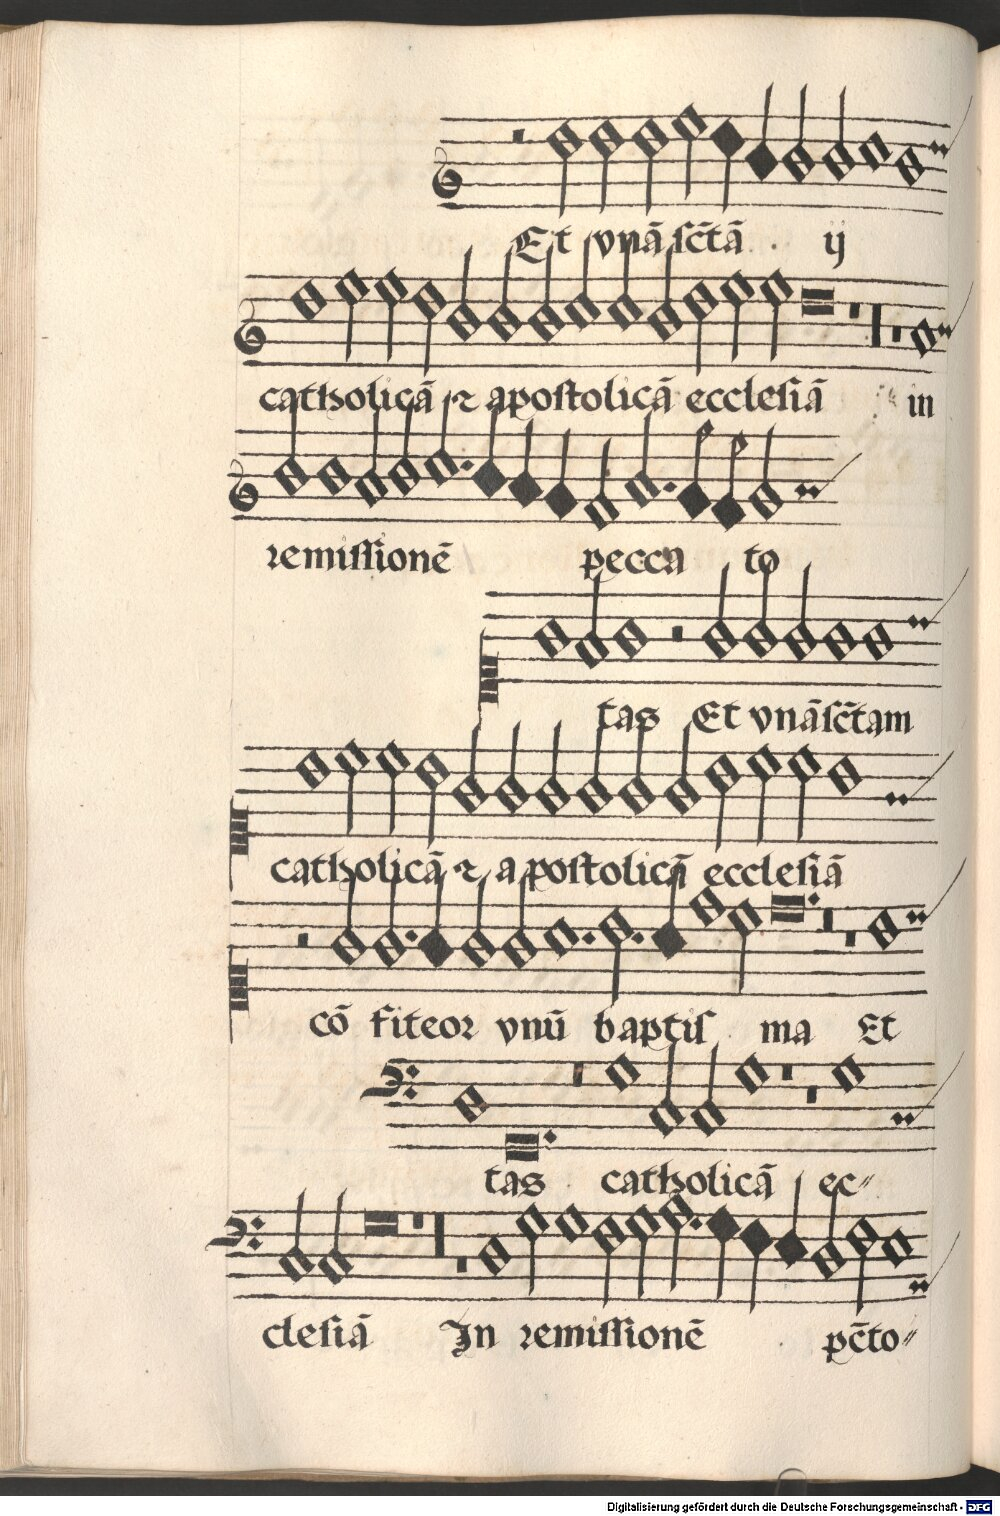 Et vnā sc̄tā ij
catholicā ⁊ apostolicā ecclesiā in
remissionē pecca to
tas Et vnāsc̄tam
catholicā ⁊ apostolicā ecclesiā
cō fiteor vnū baptis ma Et
tas catholicā ec〃
clesiā In remissionē pc̄to〃
Digitalisierung gefördert durch die Deutsche Forschungsgemeinschaft - DFG